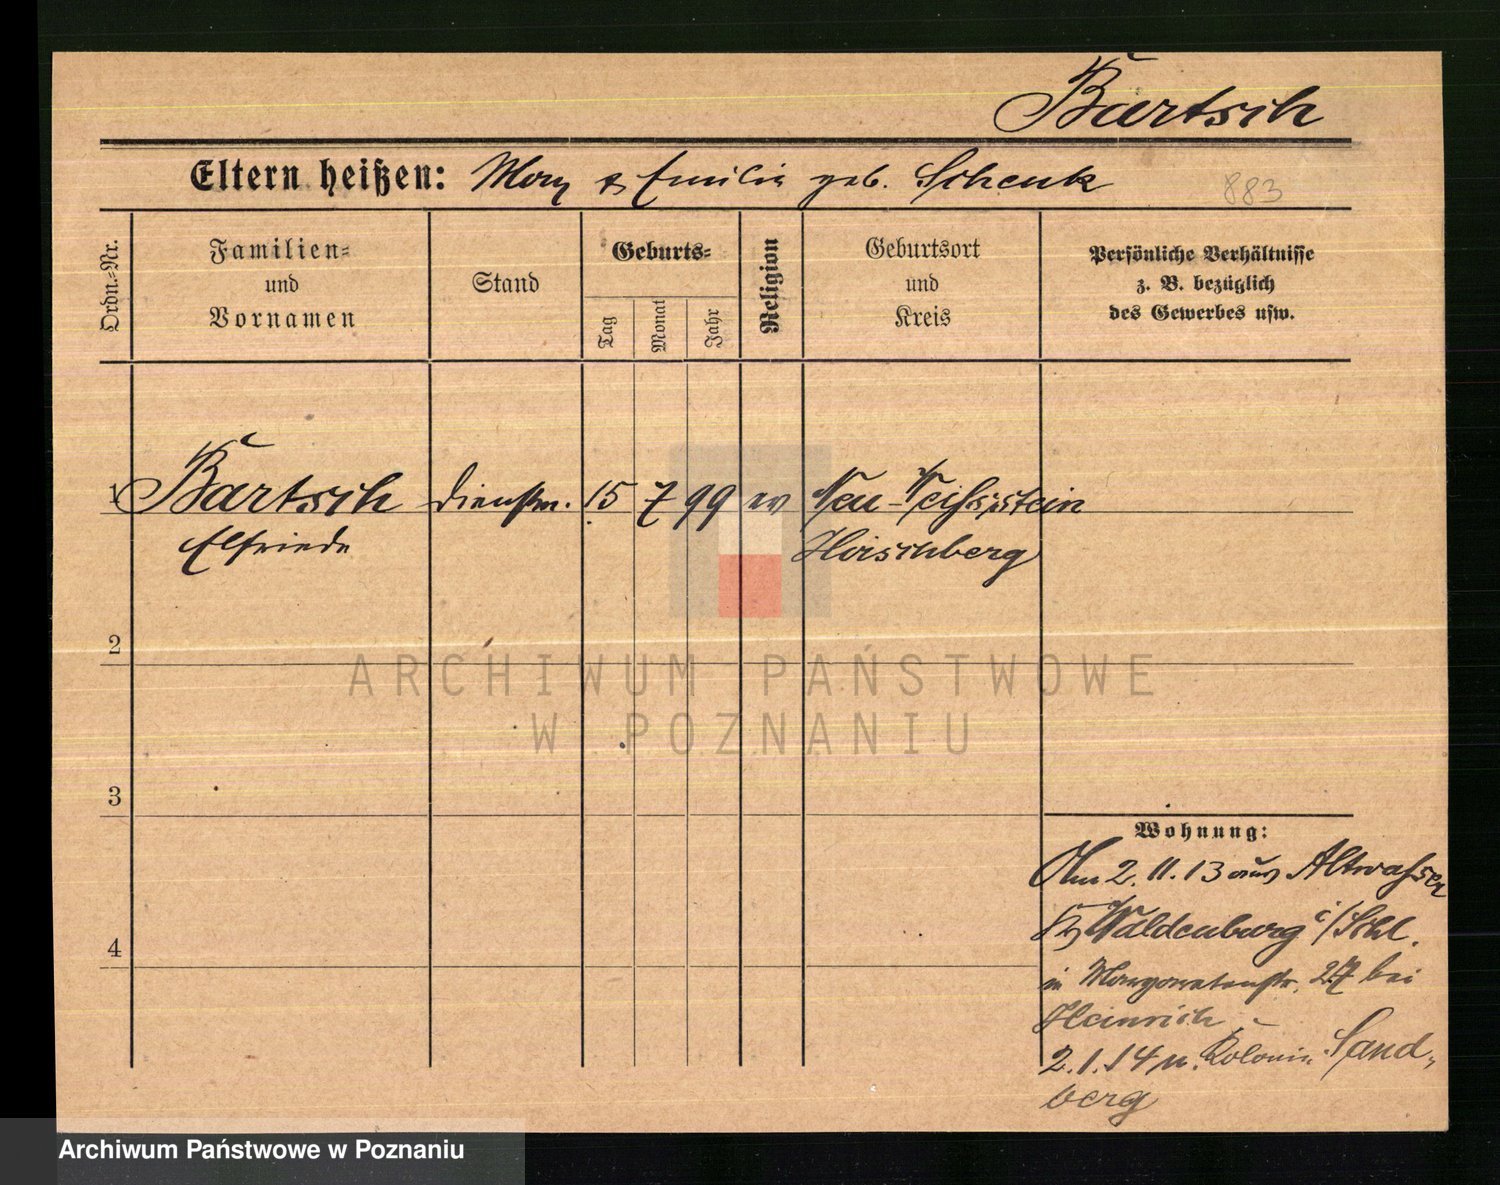 Bartsch
Eltern heißen: Max & Emilie geb. Schenk
883
Ordn.=Nr.
Familien=
und
Vornamen
Stand
Geburts=
Tag
Monat
Jahr
Religion
Geburtsort
und
Kreis
Persönliche Verhältnisse
z. B. bezüglich
des Gewerbes usw.
1 Bartsch Dienstm. 15 7 99 ev Neu-Weißstein
Elfriede Hirschberg
2
ARCHIWUM PAŃSTWOWE
W POZNANIU
3
Wohnung:
Am 2.11.13 aus Altwasser
Waldenburg i/Schl.
in Margaretenstr. 27 bei
Heinrich -
2.1.14 n. Kolonie Sand-
berg
4
Archiwum Państwowe w Poznaniu